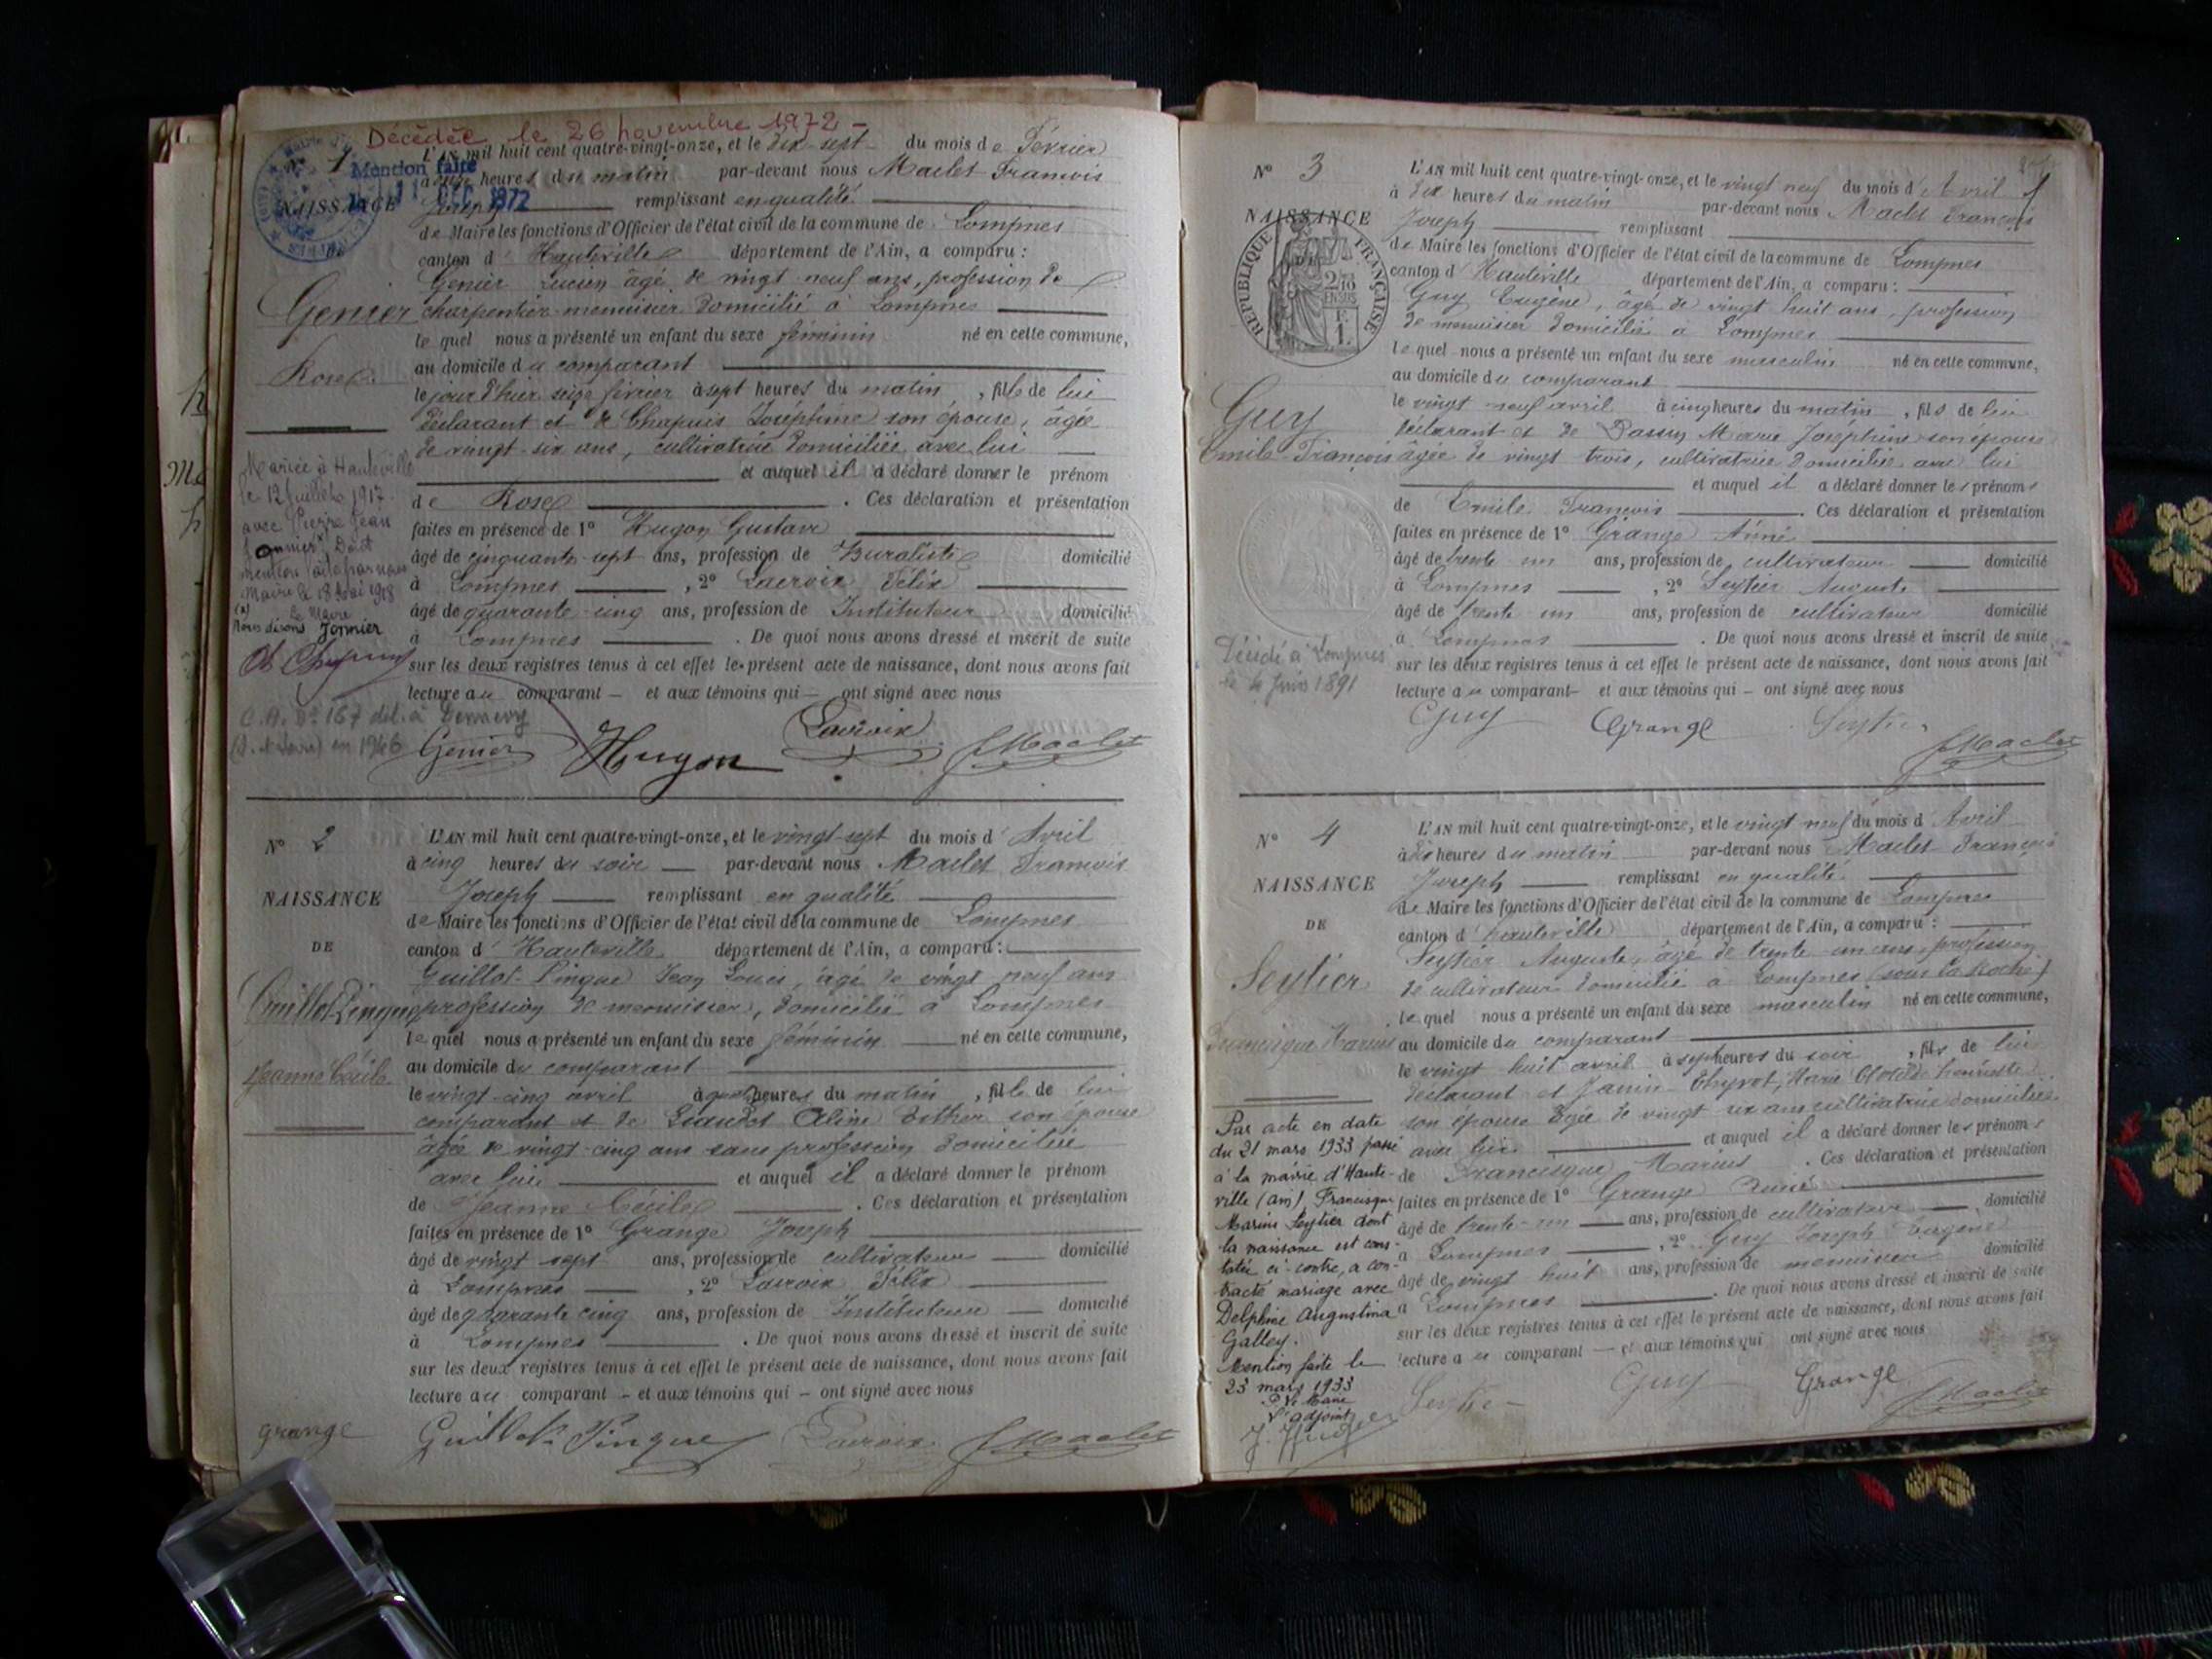 Décédée le 26 novembre 1972 –
N° 1
Mention faite
le 11 DEC 1972
NAISSANCE
DE
Genier
Rose
L'AN mil huit cent quatre-vingt-onze, et le dix-sept du mois de Février
à heures du matin par-devant nous Maclet François
Joseph remplissant en qualité
de Maire les fonctions d'Officier de l'état civil de la commune de Lompnes
canton d'Hauteville département de l'Ain, a comparu :
Genier Lucien âgé de vingt neuf ans, profession de
charpentier-menuisier domicilié à Lompnes
le quel nous a présenté un enfant du sexe féminin né en cette commune,
au domicile du comparant
le jour d'hier seize février à sept heures du matin, fille de lui
déclarant et de Chapuis Joséphine son épouse, âgée
de vingt-six ans, cultivatrice domiciliée avec lui
et auquel il a déclaré donner le prénom
de Rose. Ces déclaration et présentation
faites en présence de 1° Hugon Gustave
âgé de cinquante-sept ans, profession de Buraliste domicilié
à Lompnes, 2° Lacroix Félix
âgé de quarante-cinq ans, profession de Instituteur domicilié
à Lompnes. De quoi nous avons dressé et inscrit de suite
sur les deux registres tenus à cet effet le présent acte de naissance, dont nous avons fait
lecture au comparant – et aux témoins qui – ont signé avec nous
Mariée à Hauteville
le 12 Juillet 1917
avec Pierre Jean
Dont
mention faite par nous
Maire le 18 Mai 1918
Le Maire
(a) Nous disons Jonnier
C.A. N° 167 dél. à
en 1946
Genier Hugon Lacroix J Maclet
N° 2
NAISSANCE
DE
Guillot-Pingue
Jeanne Cécile
L'AN mil huit cent quatre-vingt-onze, et le vingt-sept du mois d'Avril
à cinq heures du soir – par-devant nous Maclet François
Joseph remplissant en qualité
de Maire les fonctions d'Officier de l'état civil de la commune de Lompnes
canton d'Hauteville département de l'Ain, a comparu :
Guillot-Pingue Jean Louis, âgé de vingt neuf ans
profession de menuisier, domicilié à Lompnes
le quel nous a présenté un enfant du sexe féminin né en cette commune,
au domicile du comparant
le vingt-cinq avril à heures du matin, fille de lui
comparant et de Liaudet Aline Esther son épouse
âgée de vingt-cinq ans sans profession domiciliée
avec lui et auquel il a déclaré donner le prénom
de Jeanne Cécile. Ces déclaration et présentation
faites en présence de 1° Grange Joseph
âgé de vingt sept ans, profession de cultivateur domicilié
à Lompnes, 2° Lacroix Félix
âgé de quarante cinq ans, profession de Instituteur domicilié
à Lompnes. De quoi nous avons dressé et inscrit de suite
sur les deux registres tenus à cet effet le présent acte de naissance, dont nous avons fait
lecture au comparant – et aux témoins qui – ont signé avec nous
grange Guillot-Pingue Lacroix J Maclet
N° 3
NAISSANCE
RÉPUBLIQUE FRANÇAISE
2/10
EN SUS
F.
1.
Guy
Emile François
L'AN mil huit cent quatre-vingt-onze, et le vingt neuf du mois d'Avril
à dix heures du matin par-devant nous Maclet François
Joseph remplissant
de Maire les fonctions d'Officier de l'état civil de la commune de Lompnes
canton d'Hauteville département de l'Ain, a comparu :
Guy Eugène, âgé de vingt huit ans, profession
de menuisier domicilié à Lompnes
le quel nous a présenté un enfant du sexe masculin né en cette commune,
au domicile du comparant
le vingt neuf avril à cinq heures du matin, fils de lui
déclarant et de Passin Marie Joséphine son épouse
âgée de vingt trois, cultivatrice domiciliée avec lui
et auquel il a déclaré donner les prénoms
de Emile François. Ces déclaration et présentation
faites en présence de 1° Grange Aimé
âgé de trente un ans, profession de cultivateur domicilié
à Lompnes, 2° Seytier Auguste
âgé de trente un ans, profession de cultivateur domicilié
à Lompnes. De quoi nous avons dressé et inscrit de suite
sur les deux registres tenus à cet effet le présent acte de naissance, dont nous avons fait
lecture au comparant – et aux témoins qui – ont signé avec nous
Décédé à Lompnes
le 4 Juin 1891
Guy Grange Seytier J Maclet
N° 4
NAISSANCE
DE
Seytier
Francisque Marius
L'AN mil huit cent quatre-vingt-onze, et le vingt neuf du mois d'Avril
à dix heures du matin par-devant nous Maclet François
Joseph remplissant en qualité
de Maire les fonctions d'Officier de l'état civil de la commune de Lompnes
canton d'Hauteville département de l'Ain, a comparu :
Seytier Auguste, âgé de trente-un ans, profession
de cultivateur domicilié à Lompnes (sous la Roche)
le quel nous a présenté un enfant du sexe masculin né en cette commune,
au domicile du comparant
le vingt huit avril à sept heures du soir, fils de lui
déclarant et Janin-Thyvot, Marie Clotilde Henriette
son épouse âgée de vingt six ans cultivatrice domiciliée
avec lui et auquel il a déclaré donner les prénoms
de Francisque Marius. Ces déclaration et présentation
faites en présence de 1° Grange Aimé
âgé de trente-un ans, profession de cultivateur domicilié
à Lompnes, 2° Guy Joseph Eugène
âgé de vingt huit ans, profession de menuisier domicilié
à Lompnes. De quoi nous avons dressé et inscrit de suite
sur les deux registres tenus à cet effet le présent acte de naissance, dont nous avons fait
lecture au comparant – et aux témoins qui ont signé avec nous
Par acte en date
du 21 mars 1933 passé
à la mairie d'Haute-
ville (Ain) Francisque
Marius Seytier dont
la naissance est cons-
tatée ci-contre, a con-
tracté mariage avec
Delphine Augustina
Galley.
Mention faite le
23 mars 1933
P. le Maire
L'adjoint
Seytier Guy Grange J Maclet